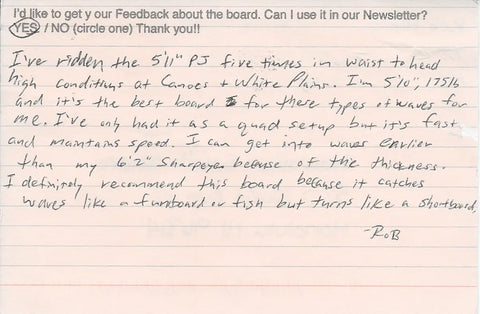 I'd like to get y our Feedback about the board. Can I use it in our Newsletter?
YES / NO (circle one) Thank you!!
I've ridden the 5'11" PJ five times in waist to head
high conditions at Canoes + White Plains. I'm 5'10", 175lb
and it's the best board for these types of waves for
me. I've only had it as a quad setup but it's fast
and maintains speed. I can get into waves earlier
than my 6'2" Sharpeye because of the thickness.
I definitely recommend this board because it catches
waves like a funboard or fish but turns like a shortboard.
-ROB